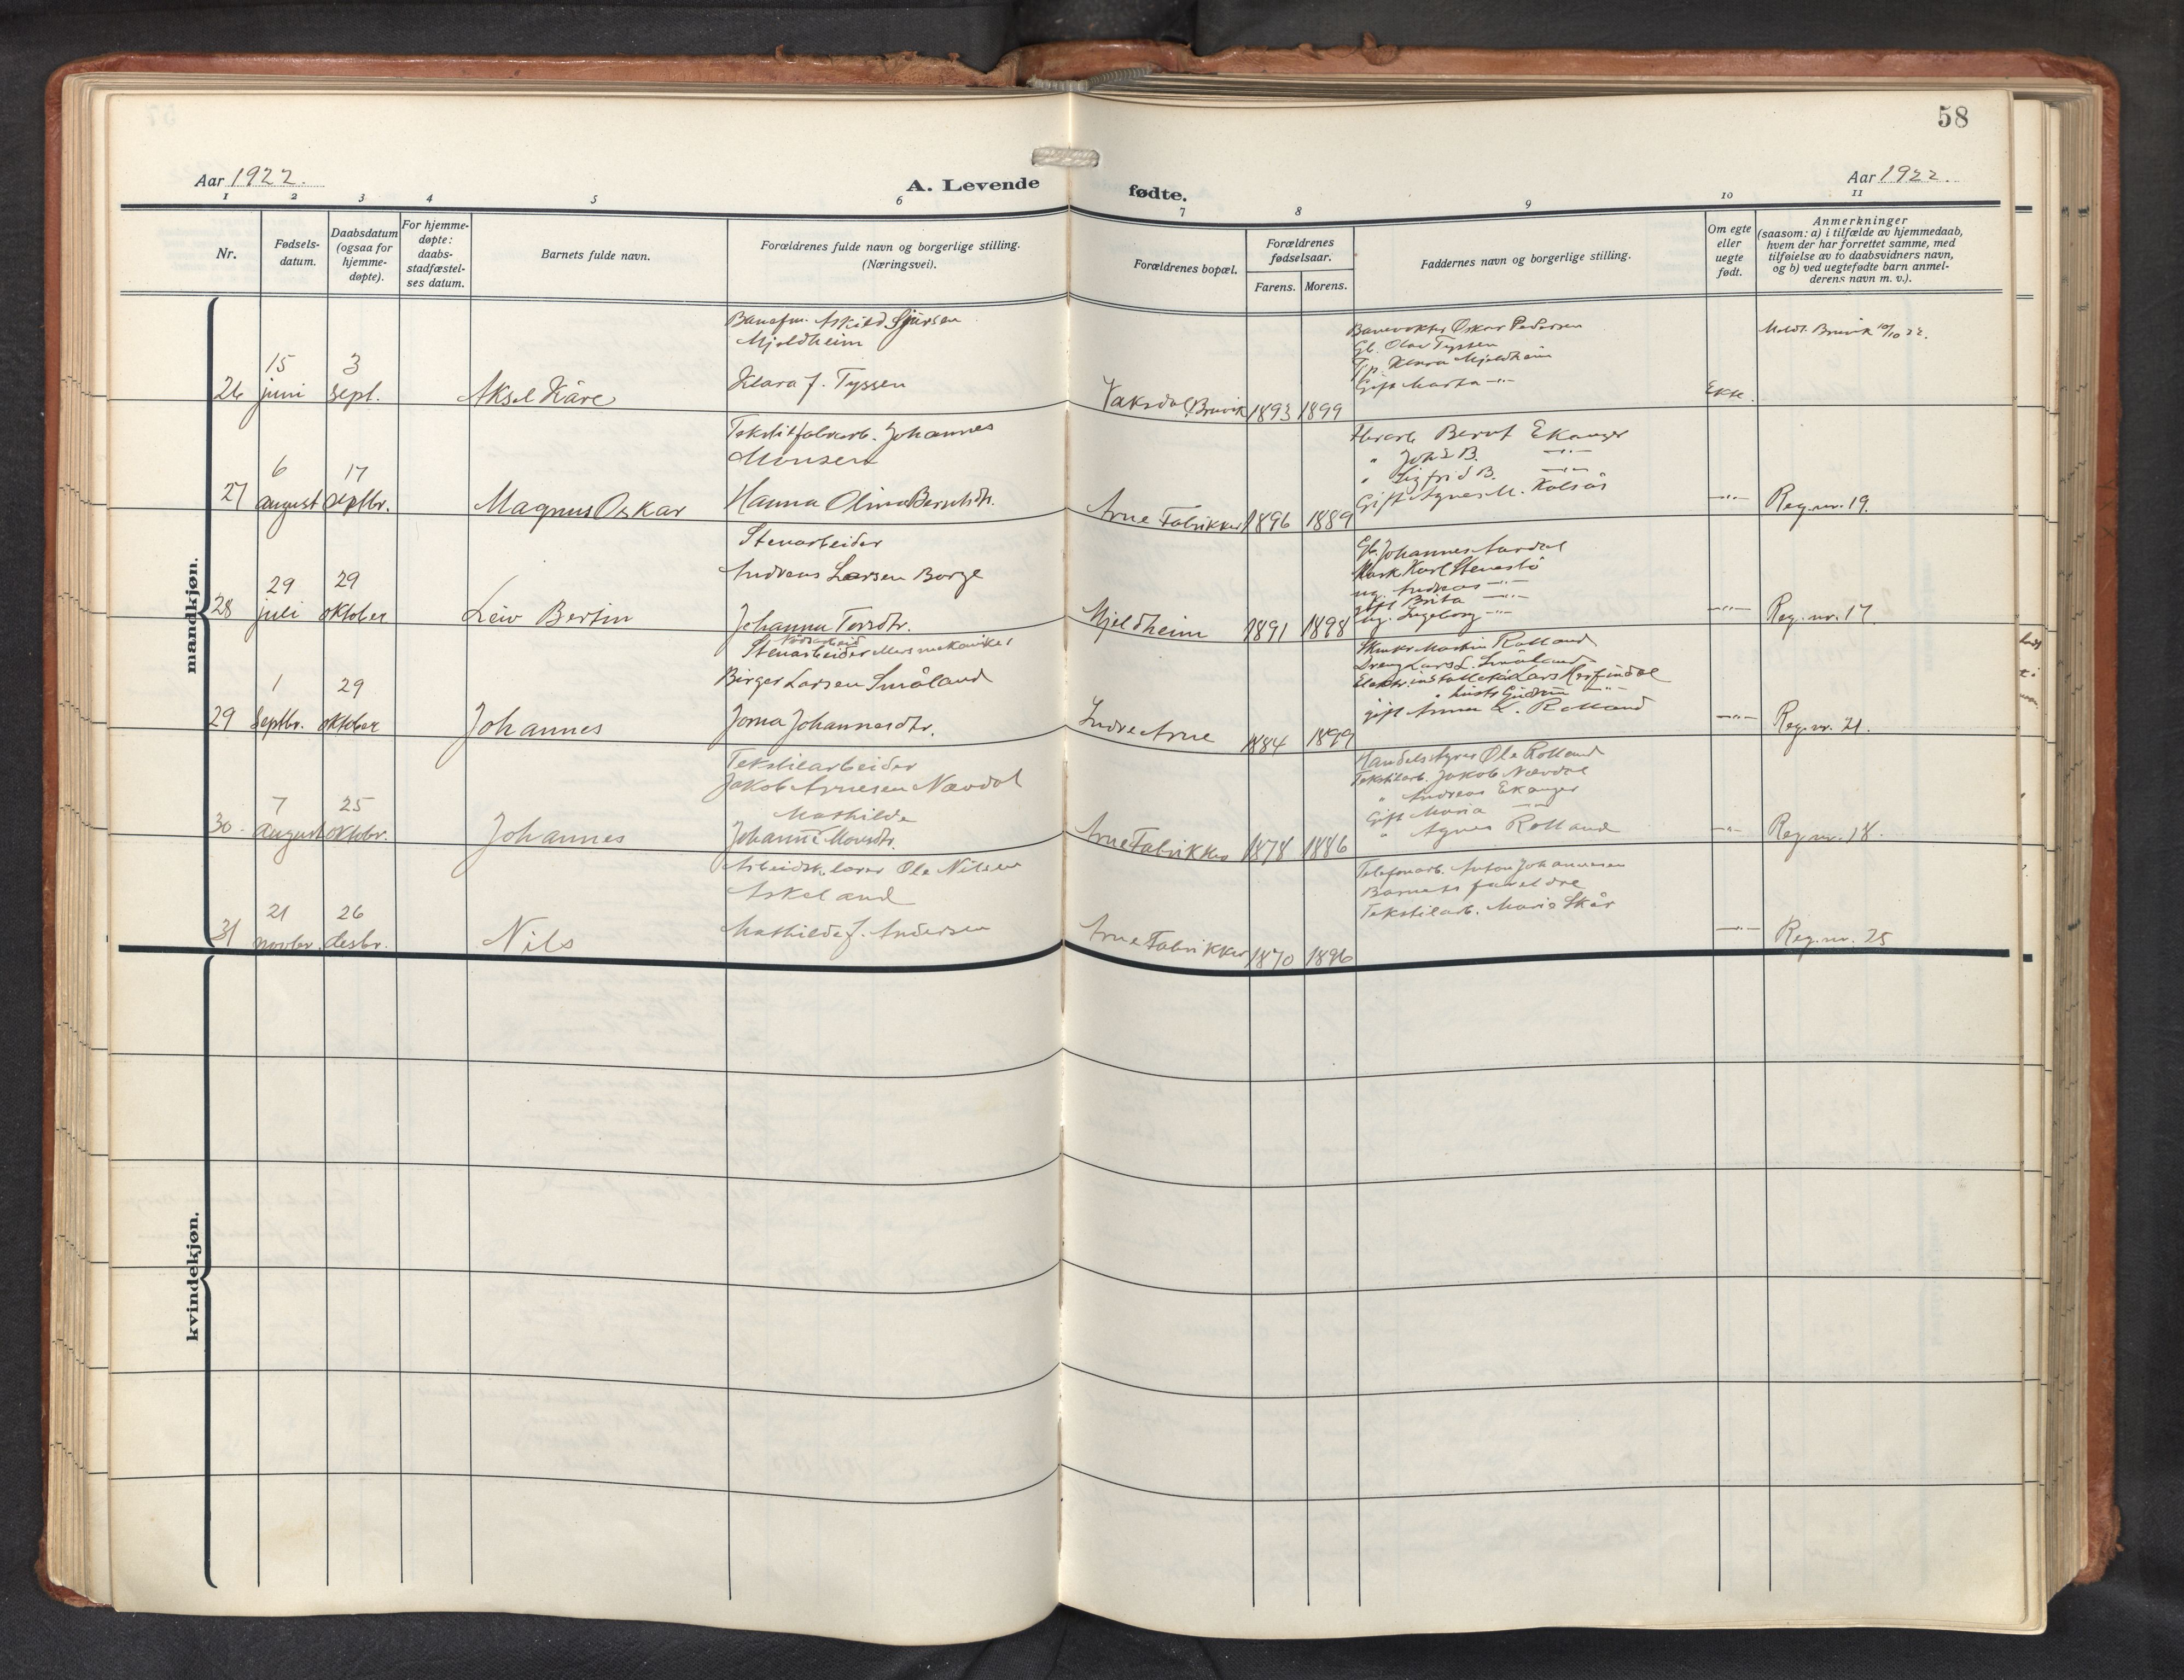 58
Aar 1922.
A. Levende fødte.
Aar 1922.
1 2 3 4 5 6 7 8 9 10 11
Nr.
Fødsels-
datum.
Daabsdatum
(ogsaa for
hjemme-
døpte).
For hjemme-
døpte:
daabs-
stadfæstel-
ses datum.
Barnets fulde navn.
Forældrenes fulde navn og borgerlige stilling.
(Næringsvei).
Forældrenes bopæl.
Forældrenes
fødselsaar.
Farens. Morens.
Faddernes navn og borgerlige stilling.
Om egte
eller
uegte
født.
Anmerkninger
(saasom: a) i tilfælde av hjemmedaab,
hvem der har forrettet samme, med
tilføielse av to daabsvidners navn,
og b) ved uegtefødte barn anmel-
derens navn m. v.).
mandkjøn.
26
15
juni
3
sept.
Aksel Kåre
Banefm. Askild Sjursen
Mjeldheim
Klara J. Tyssen
Vaksdal, Bruvik
1893 1899
Banevokter Oskar Pedersen
Gb. Olav Tyssen
Klara Mjeldheim
Gift Marta -"-
Ekte.
Meldt Bruvik 10/10 22.
27
6
august
17
septbr.
Magnus Oskar
Tekstilfabrarb. Johannes
Monsen
Hanna Olina Berntsdtr.
Arne Fabrikker
1896 1889
Bernt Ekanger
" Joh's B. -"-
" Sigfrid B. -"-
Gift Agnes M. Kalsås
-"-
Reg. nr. 19.
28
29
juli
29
oktober
Leiv Bertin
Stenarbeider
Andreas Larsen Borge
Johanna Torsdtr.
Mjeldheim
1891 1898
Gb. Johannes Aardal
Mask Karl Stenestø
ug. Andreas -"-
gift Brita -"-
ug. Ingeborg -"-
-"-
Reg. nr. 17.
29
1
Septbr.
29
oktober
Johannes
Stenarbeider
Birger Larsen Småland
Jorna Johannesdtr.
Indre Arne
1884 1899
Martin Rolland
Dreng Lars L. Småland
Elektr. installatør Lars Herfindal
" hustr Gudrun -"-
gift Anna L. Rolland
-"-
Reg. nr. 21.
30
7
august
25
oktobr.
Johannes
Tekstilarbeider
Jakob Arnesen Nævdal
Mathilde
Johanne Monsdtr.
Arne Fabrikker
1878 1886
Handelsbestyrer Ole Rolland
Tekstilarb. Jakob Nævdal
" Andreas Ekanger
Gift Maria -"-
" Agnes Rolland
-"-
Reg. nr. 18.
31
21
novbr.
26
desbr.
Nils
Ole Nilsen
Askeland
Mathilde J. Andersen
Arne Fabrikker
1870 1896
Telefonarb. Anton Johannesen
Barnets foreldre
Tekstilarb. Marie Skår
-"-
Reg. nr. 25
kvindekjøn.